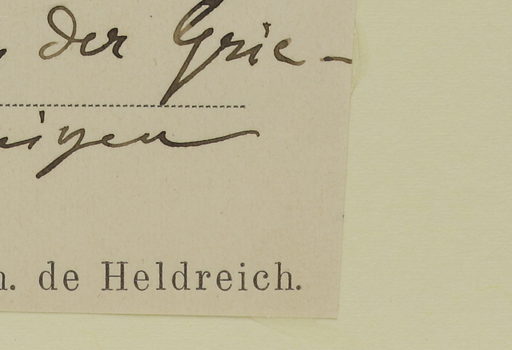 der Grie-
n. de Heldreich.